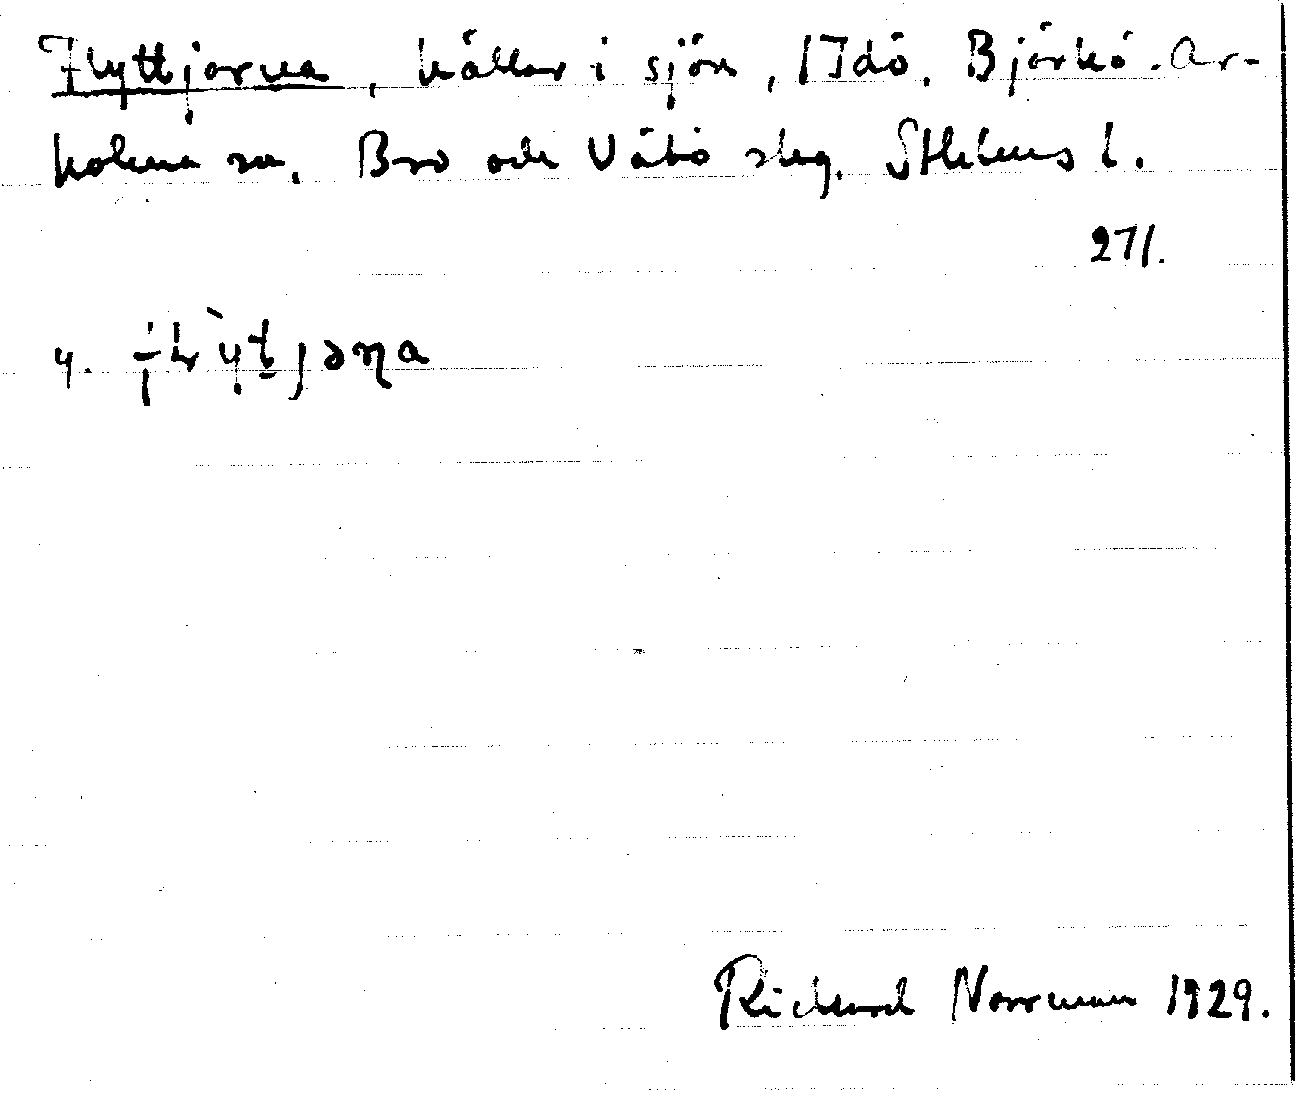 Flyttjorna, källor i sjön, 1 Idö. Björkö-Ar-
holma sn. Bro och Vätö skg. Sthlms l.
271.
4.
Richard Norrman 1929.